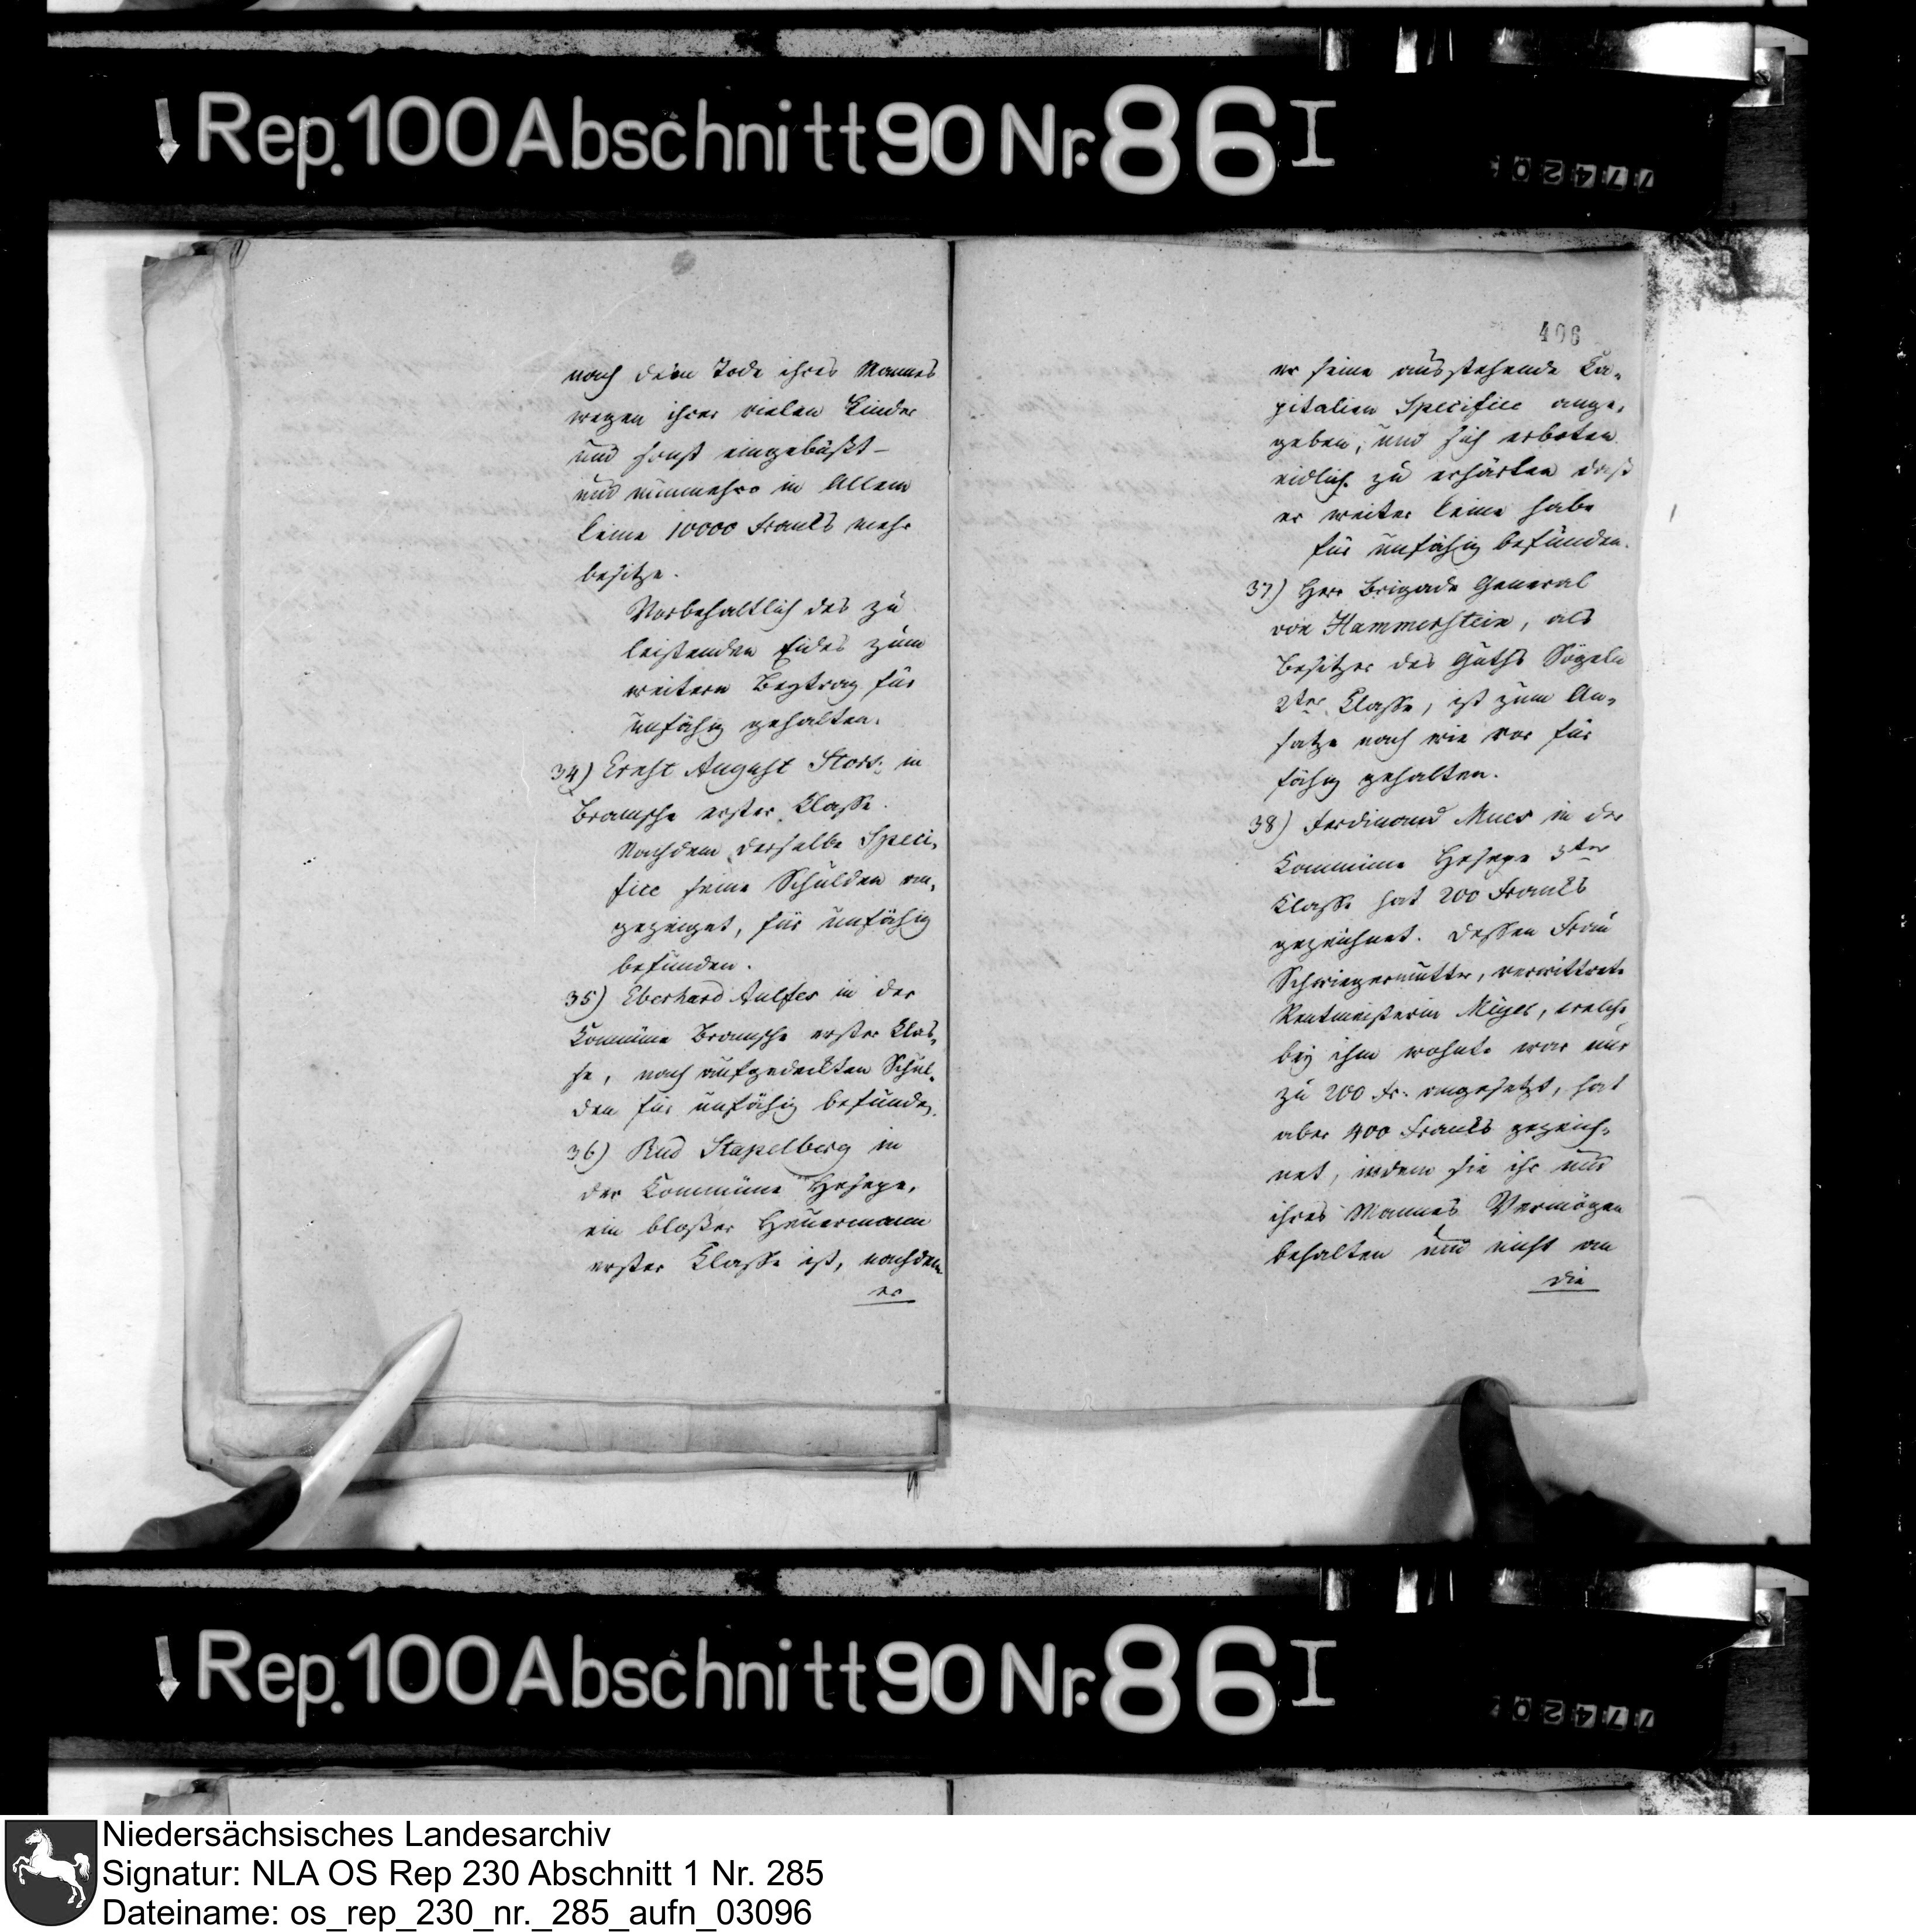 Rep. 100 Abschnitt 90 Nr. 86 I
77420
nach dem Tode ihres Mannes
wegen ihrer vielen Kinder
und sonst eingebüßt –
und nunmehro in Allem
keine 10000 Franks mehr
besitze.
Vorbehaltlich des zu
leistenden Eides zum
weitern Beytrag für
unfähig gehalten.
34) Ernst August in
Bramsche erster Klasse.
Nachdem derselbe Speci-
fice seine Schulden an-
gezeiget, für unfähig
befunden.
35) Eberhard in der
Kommüne Bramsche erster Klas-
se, nach aufgedeckten Schul-
den für unfähig befunden.
36) Rud Stapelberg in
der Kommüne Hesepe,
ein bloßer Heuermann
erster Klasse ist, nachdem
er
406
er seine ausstehende Ka-
pitalien Specifice ange-
geben, und sich erboten
eidlich zu erhärten daß
er weiter keine habe
für unfähig befunden.
37) Herr Brigade General
von Hammerstein, als
Besitzer des Guths Sögeln
2ter Klasse, ist zum An-
satze nach wie vor für
fähig gehalten.
38) Ferdinand in der
Kommüne Hesepe 3ter
Klasse hat 200 Franks
gezeichnet. Dessen Frau
Schwiegermutter, verwittwete
Rentmeisterin Meyer, welche
bey ihm wohnte war nur
zu 200 Fr. angesetzt, hat
aber 400 Franks gezeich-
net, indem sie ihr und
ihres Mannes Vermögen
behalten und nicht an
die
Rep. 100 Abschnitt 90 Nr. 86 I
77420
Niedersächsisches Landesarchiv
Signatur: NLA OS Rep 230 Abschnitt 1 Nr. 285
Dateiname: os_rep_230_nr._285_aufn_03096